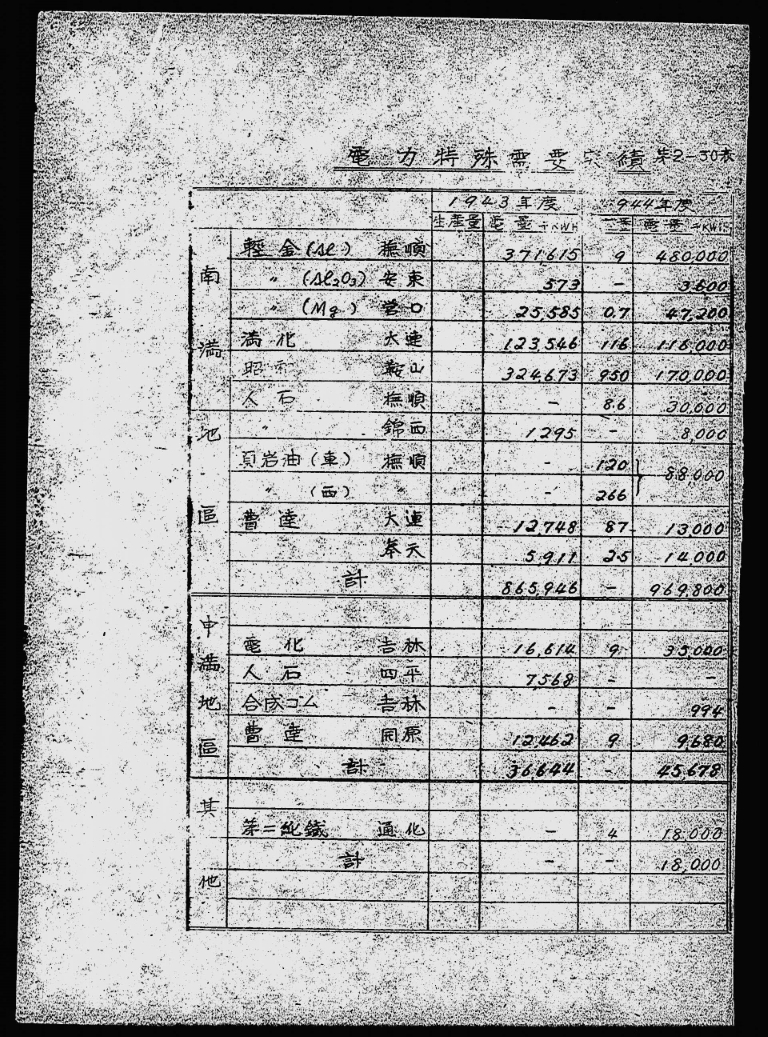 電力特殊需要実績 第2-30表
1943年度 1944年度
生産量 電量千KWH 電量千KWH
南満地區
輕金(Al) 撫順 371,615 9 480,000
〃 (Al₂O₃) 安東 573 - 3,600
〃 (Mg) 営口 25,585 0.7 47,200
満化 大連 123,546 116 116,000
昭和 鞍山 324,673 950 170,000
人石 撫順 - 8.6 30,000
〃 錦西 1,295 - 8,000
頁岩油(東) 撫順 - 120 88,000
〃 (西) 〃 - 266
曹達 大連 12,748 87 13,000
奉天 5,911 25 14,000
計 865,946 - 969,800
中満地區
電化 吉林 16,614 9 35,000
人石 四平 7,568 - -
合成ゴム 吉林 - - 994
曹達 開原 12,462 9 9,680
計 36,644 - 45,678
其他
第二純鐵 通化 - 4 18,000
計 - - 18,000